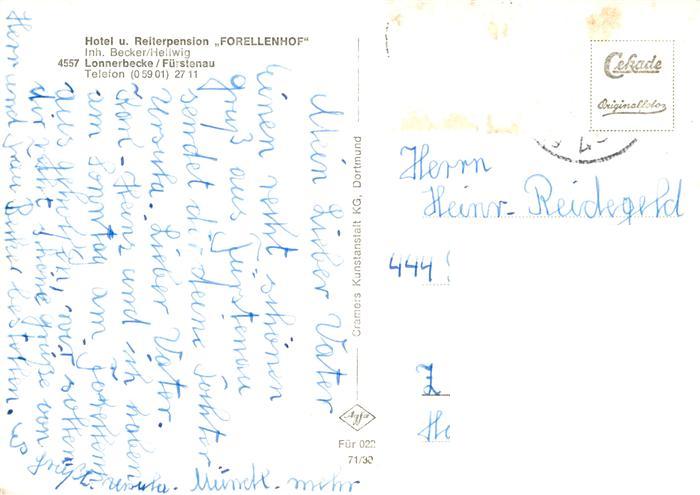 Hotel u. Reiterpension „FORELLENHOF"
Inh. Becker/Hellwig
4557 Lonnerbecke/Fürstenau
Telefon (0 59 01) 27 11
Mein Lieber Vater
einen recht schönen
gruß aus Fürstenau
sendet dir deine Tochter
Ursula. Lieber Vater.
Karl-Heinz und ich haben
am Sonntag am
aus wir sollen
dir recht schöne grüße von
Herr und Frau bestellen.
gruß Ursula. Münch. mehr
Cramers Kunstanstalt KG, Dortmund
Agfa
Für 022
71/30
Cekade
Originalfoto
Herrn
Heinr- Reidegeld
444
Z
He